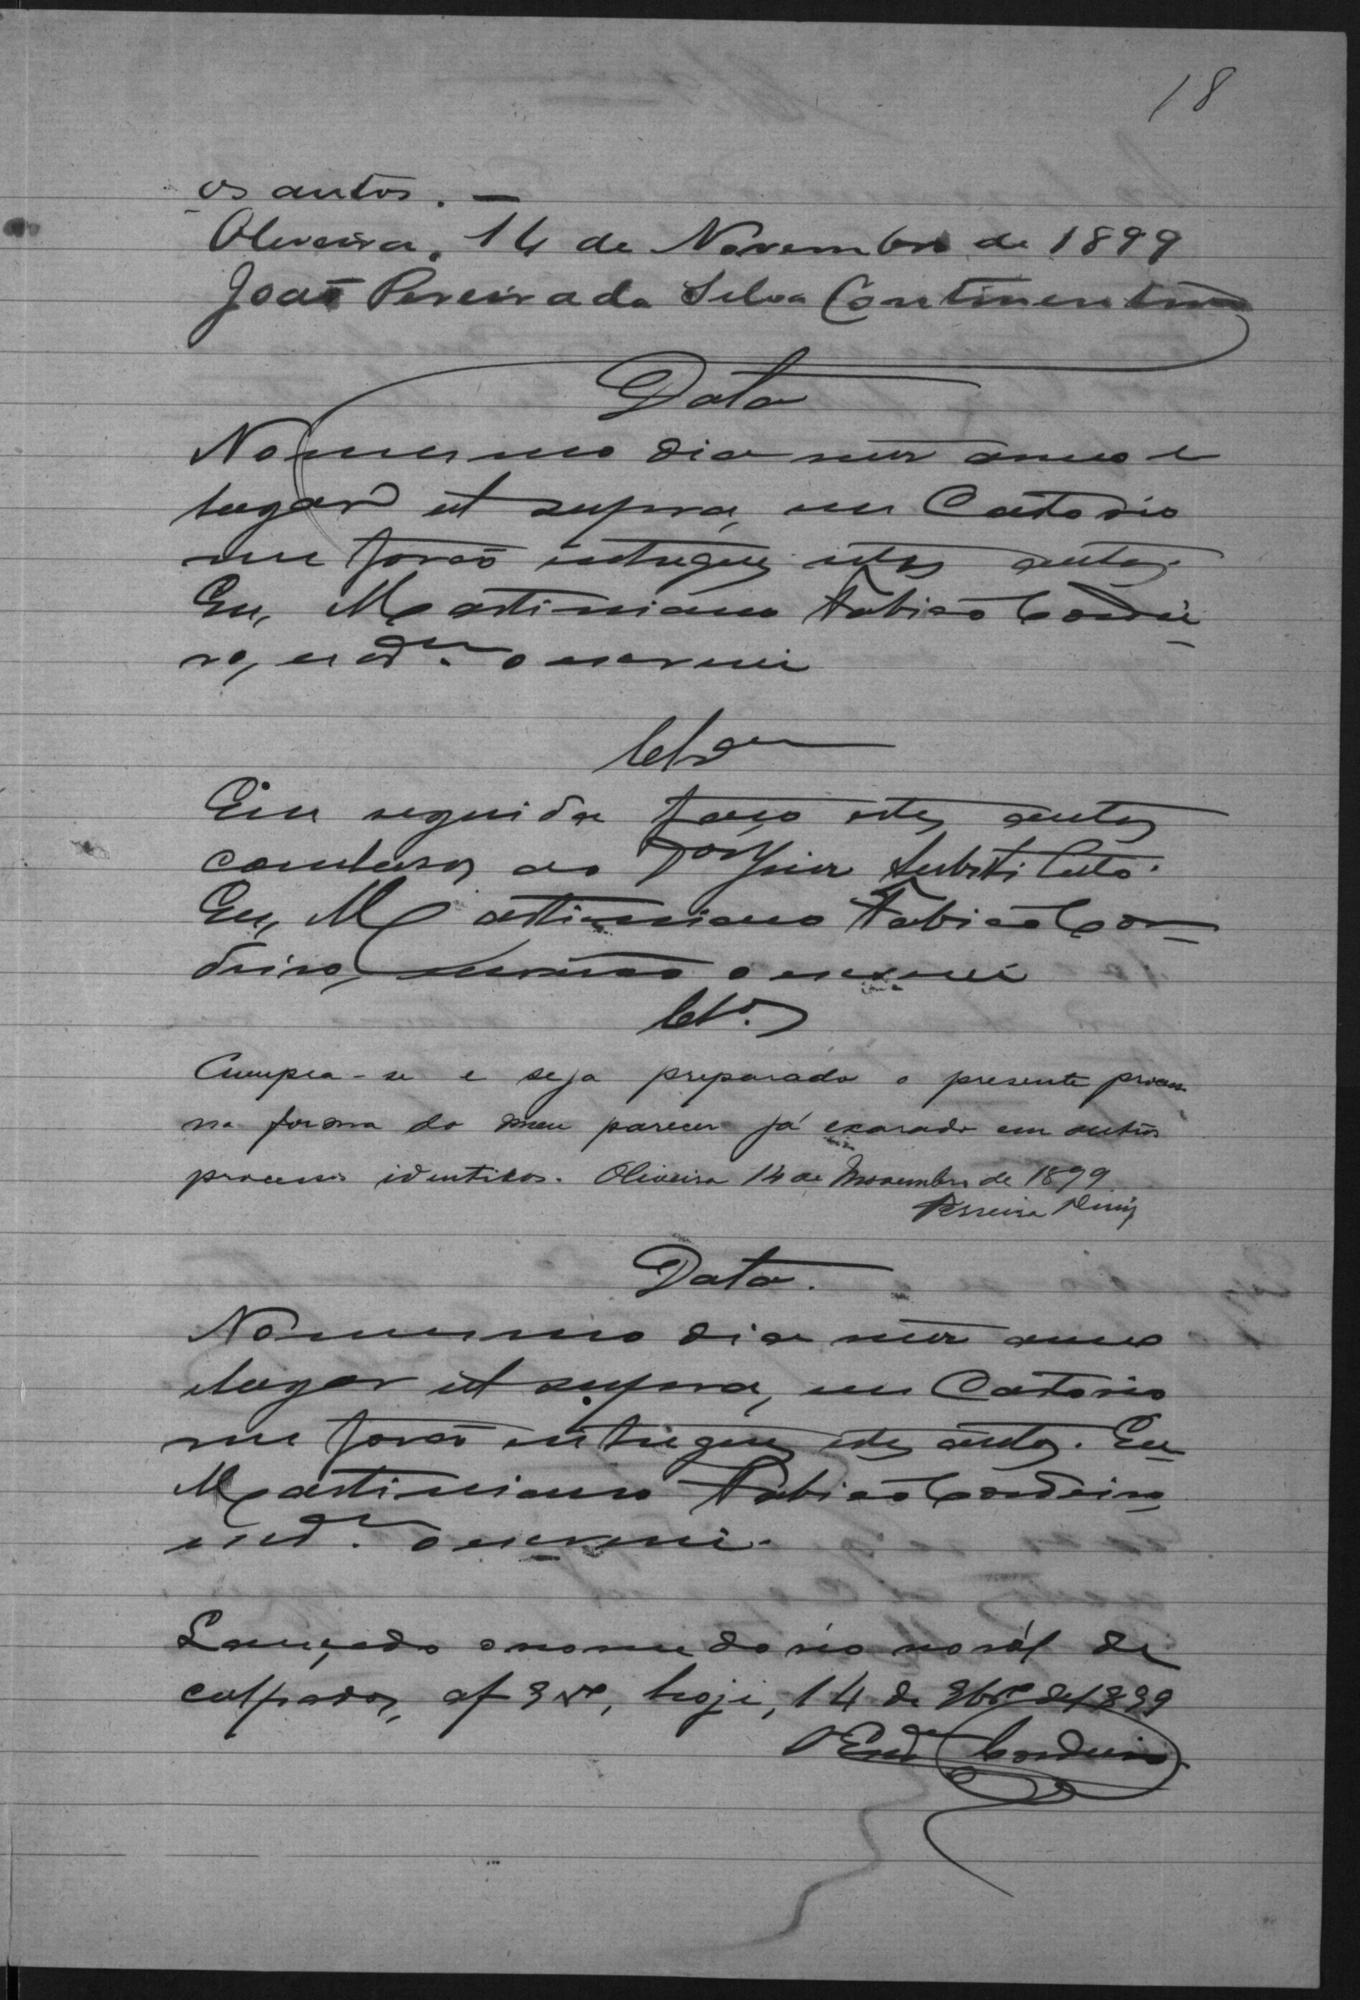 18
os autos. —
Oliveira, 14 de Novembro de 1899
João Pereira da Silva Continentino
Data
No mesmo dia mez anno e
lugar ut supra, em Catorio
me forão entregues estes autos.
Eu, Martiniano Fabião Cordei-
ro, escr.m o escrevi
Clsam
Em seguida faço estes autos
conclusos ao Juiz Substituto.
Eu, Martiniano Fabião Cor-
deiro, escrivão o escrevi
Clos
Cumpra-se e seja preparado o presente processo
na forma do meu parecer já exarado em outros
processos identicos. Oliveira 14 de Novembro de 1899
Pereira Diniz
Data.
No mesmo dia mez anno
e lugar ut supra, em Catorio
me forão entregues estes autos. Eu
Martiniano Fabião Cordeiro,
escr.m o escrevi.
Lançado o nome do réo noról de
culpados, af 3 vo, hoje, 14 de 9bro de 1899
O Escam Cordeiro